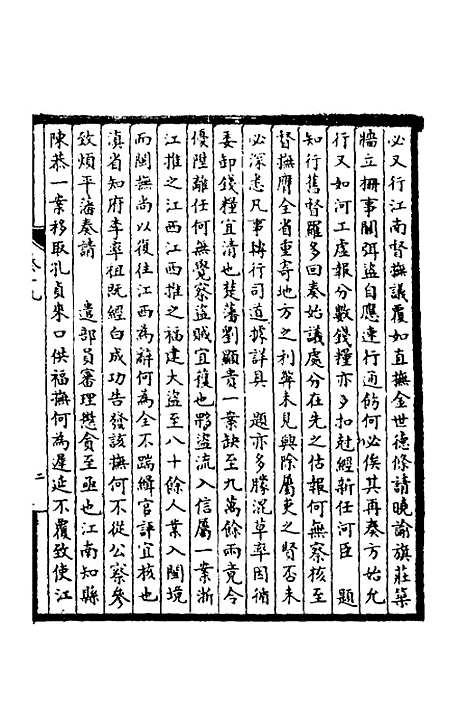 必又行江南督撫議覆如直撫金世德條請曉諭旗莊築
牆立柵事關弭盜自應速行通飭何必俟其再奏方始允
行又如河工虛報分數錢糧亦多扣尅經新任河臣　題
知行舊督羅多回奏始議處分在先之估報何無察核至
督撫膺全省重寄地方之利弊未見興除屬吏之督否未
必深悉凡事轉行司道據詳具　題亦多朦混草率因循
委卸錢糧宜清也楚藩劉顯貴一案缺至九萬餘兩竟令
優陞離任何無覺察盜賊宜彌也夥盜流入信屬一案浙
江推之江西江西推之福建大盜至八十餘人業入閩境
而閩撫尚以復往江西為辭何為全不踹緝官評宜核也
滇省知府李率祖既經白成功告發該撫何不從公察參
致煩平藩奏請　遣部員審理懲貪至亟也江南知縣
陳恭一案移取孔貞來口供福撫何為遲延不覆致使江
卷九
二